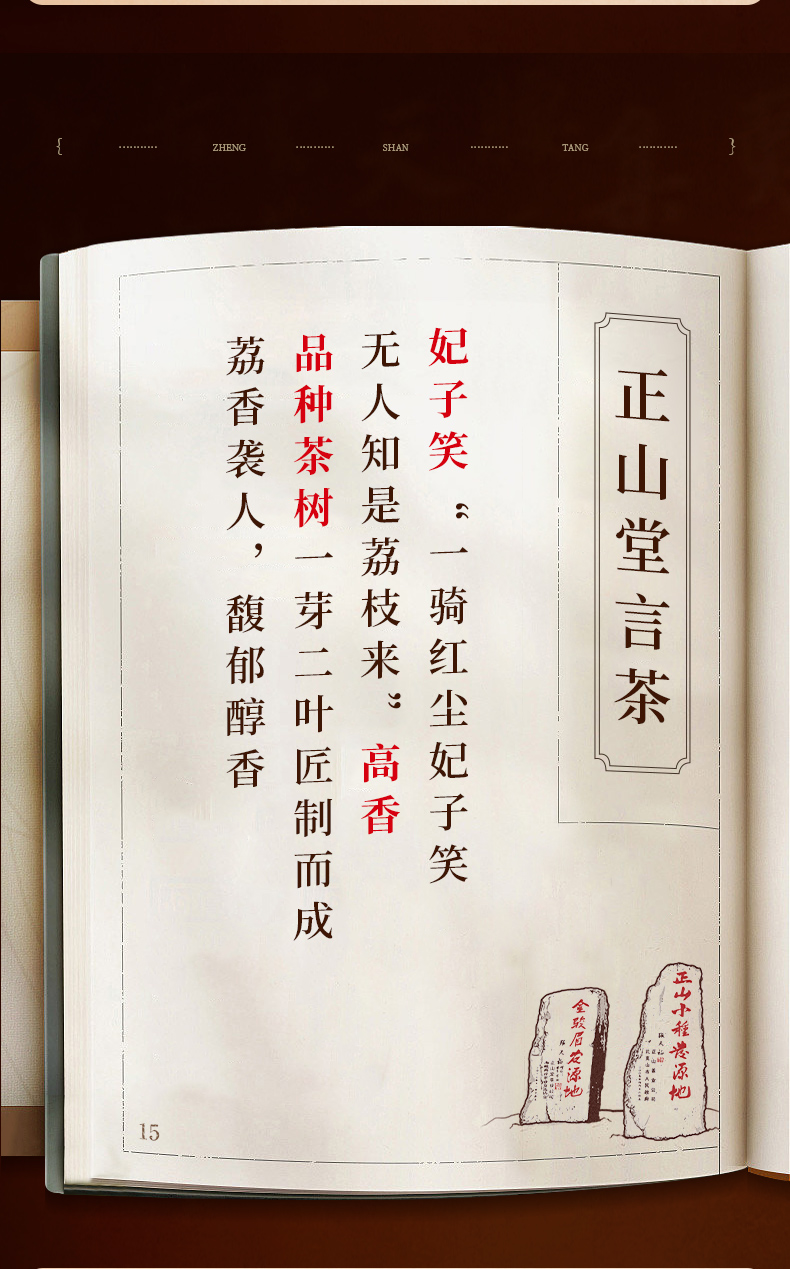 { ZHENG SHAN TANG }
正山堂言茶
妃子笑“一骑红尘妃子笑
无人知是荔枝来”高香
品种茶树一芽二叶匠制而成
荔香袭人，馥郁醇香
正山小种发源地
金骏眉发源地
15